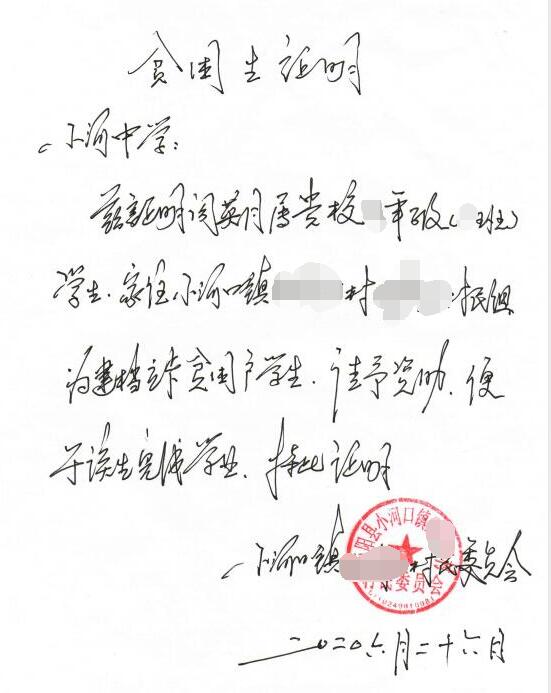 贫困生证明
小河中学：
兹证明闫英月属贵校 年级( 班)
学生、家住小河口镇 村 村民组
为建档立卡贫困户学生，请予资助、便
于该生完成学业、特此证明
小河口镇 村民委员会
阳县小河口镇
委员会
二〇二〇六月二十六日